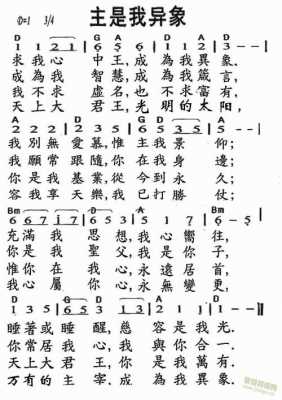 主是我异象
D=1 3/4
D G A D
1 1 2 1 6 5 6 1 1 2 3 - -
求我心 中王,成為我異象.
成為我 智慧,成為我箴言,
我不求 虛名,也不求富有,
天上大 君王,光明的太陽,
A D G A
2 2 2 2 3 5 6 6 5 3 5 5 - -
我別無愛慕,惟主我景 仰;
我願常跟隨,你在我身 邊;
你是我基業,從今到永 久;
容我享天樂,我已打勝 仗;
Bm D A Bm
6 6 7 1 7 6 6 5 3 5 1 7 6 - 5
充滿我 思想,我心嚮往,
你是我 聖父,我是你子,
惟你在 我心,永遠居首,
我心屬 你心,永無變更,
D G D A D
睡著或 睡醒,慈 容是我光.
你常居 我心,我 與你合一.
天上大 君王,你 是我萬有.
万有的 主宰.成 為我異象.